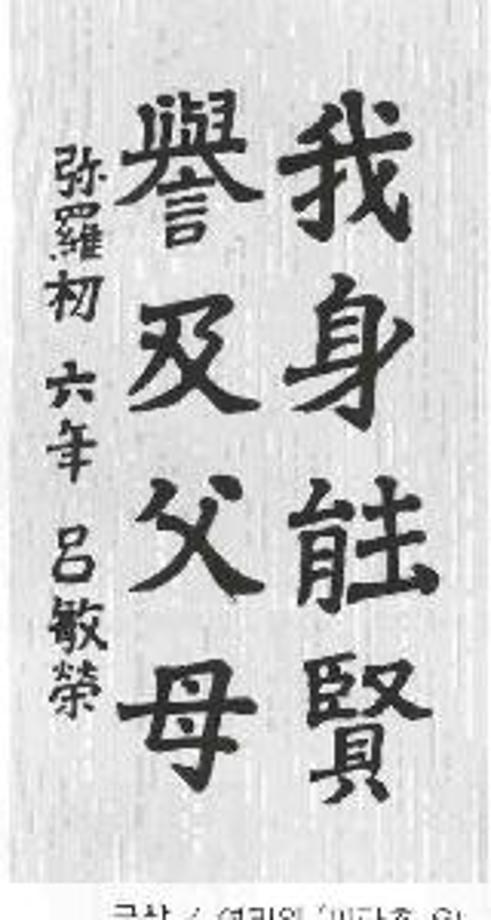 我身能賢
譽及父母
弥羅初 六年 呂敏榮